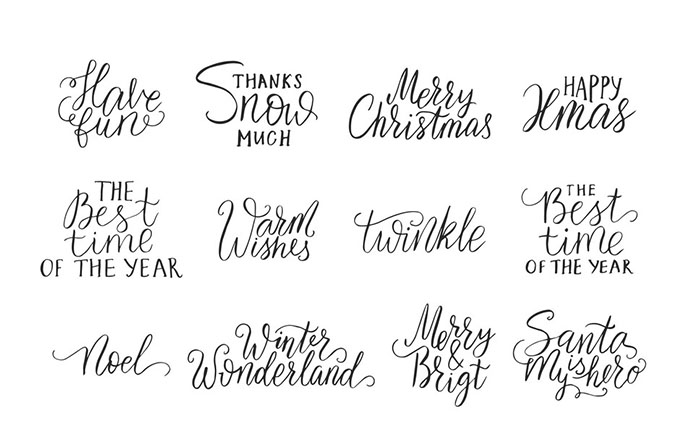 Have
fun
THANKS
Snow
MUCH
Merry
Christmas
HAPPY
Xmas
THE
Best
time
OF THE YEAR
Warm
Wishes
twinkle
THE
Best
time
OF THE YEAR
Noel
Winter
Wonderland
Merry
&
Brigt
Santa
is
My hero